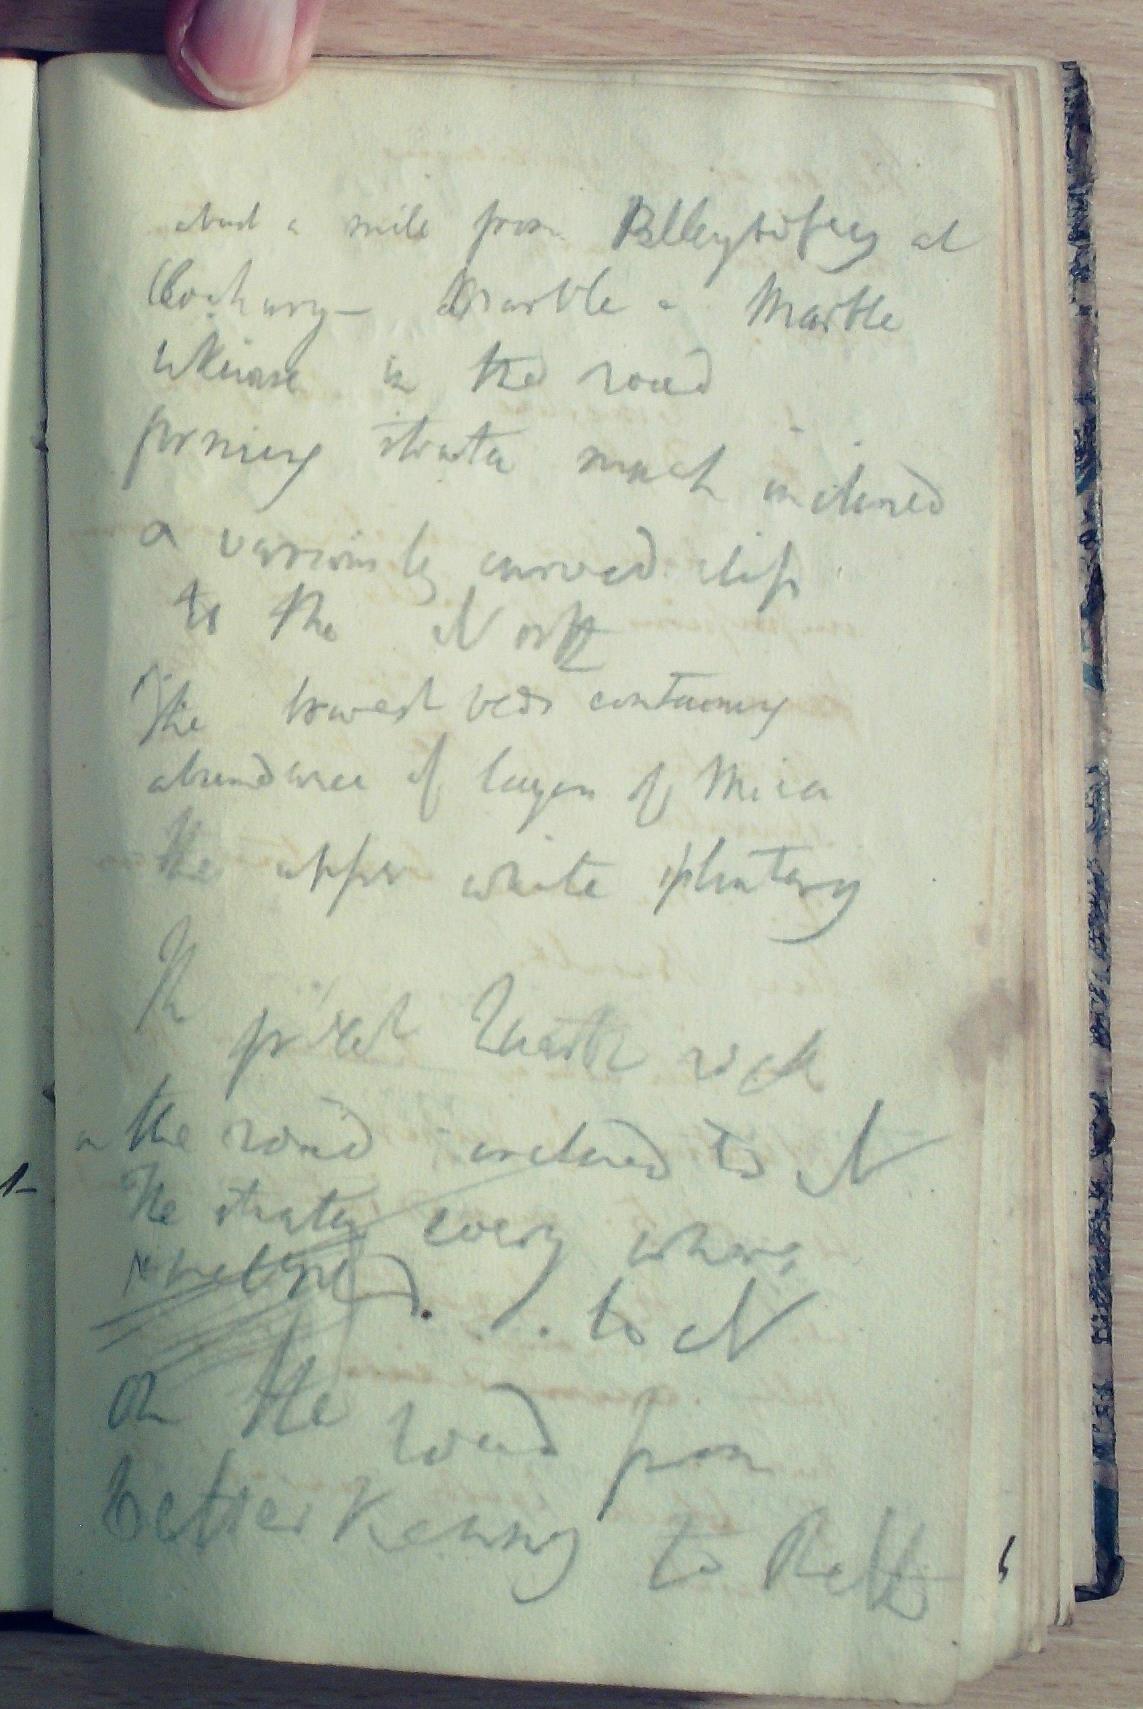 about a mile from Ballybofey at
Marble - Marble
in the road
forming strata much inclined
a variously curved dip
to the North
The lowest beds containing
abundance of layers of Mica
The upper white
The first Quartz rock
in the road inclined to N
The strata every where
inclined. . to N
On the road from
Letterkenny to